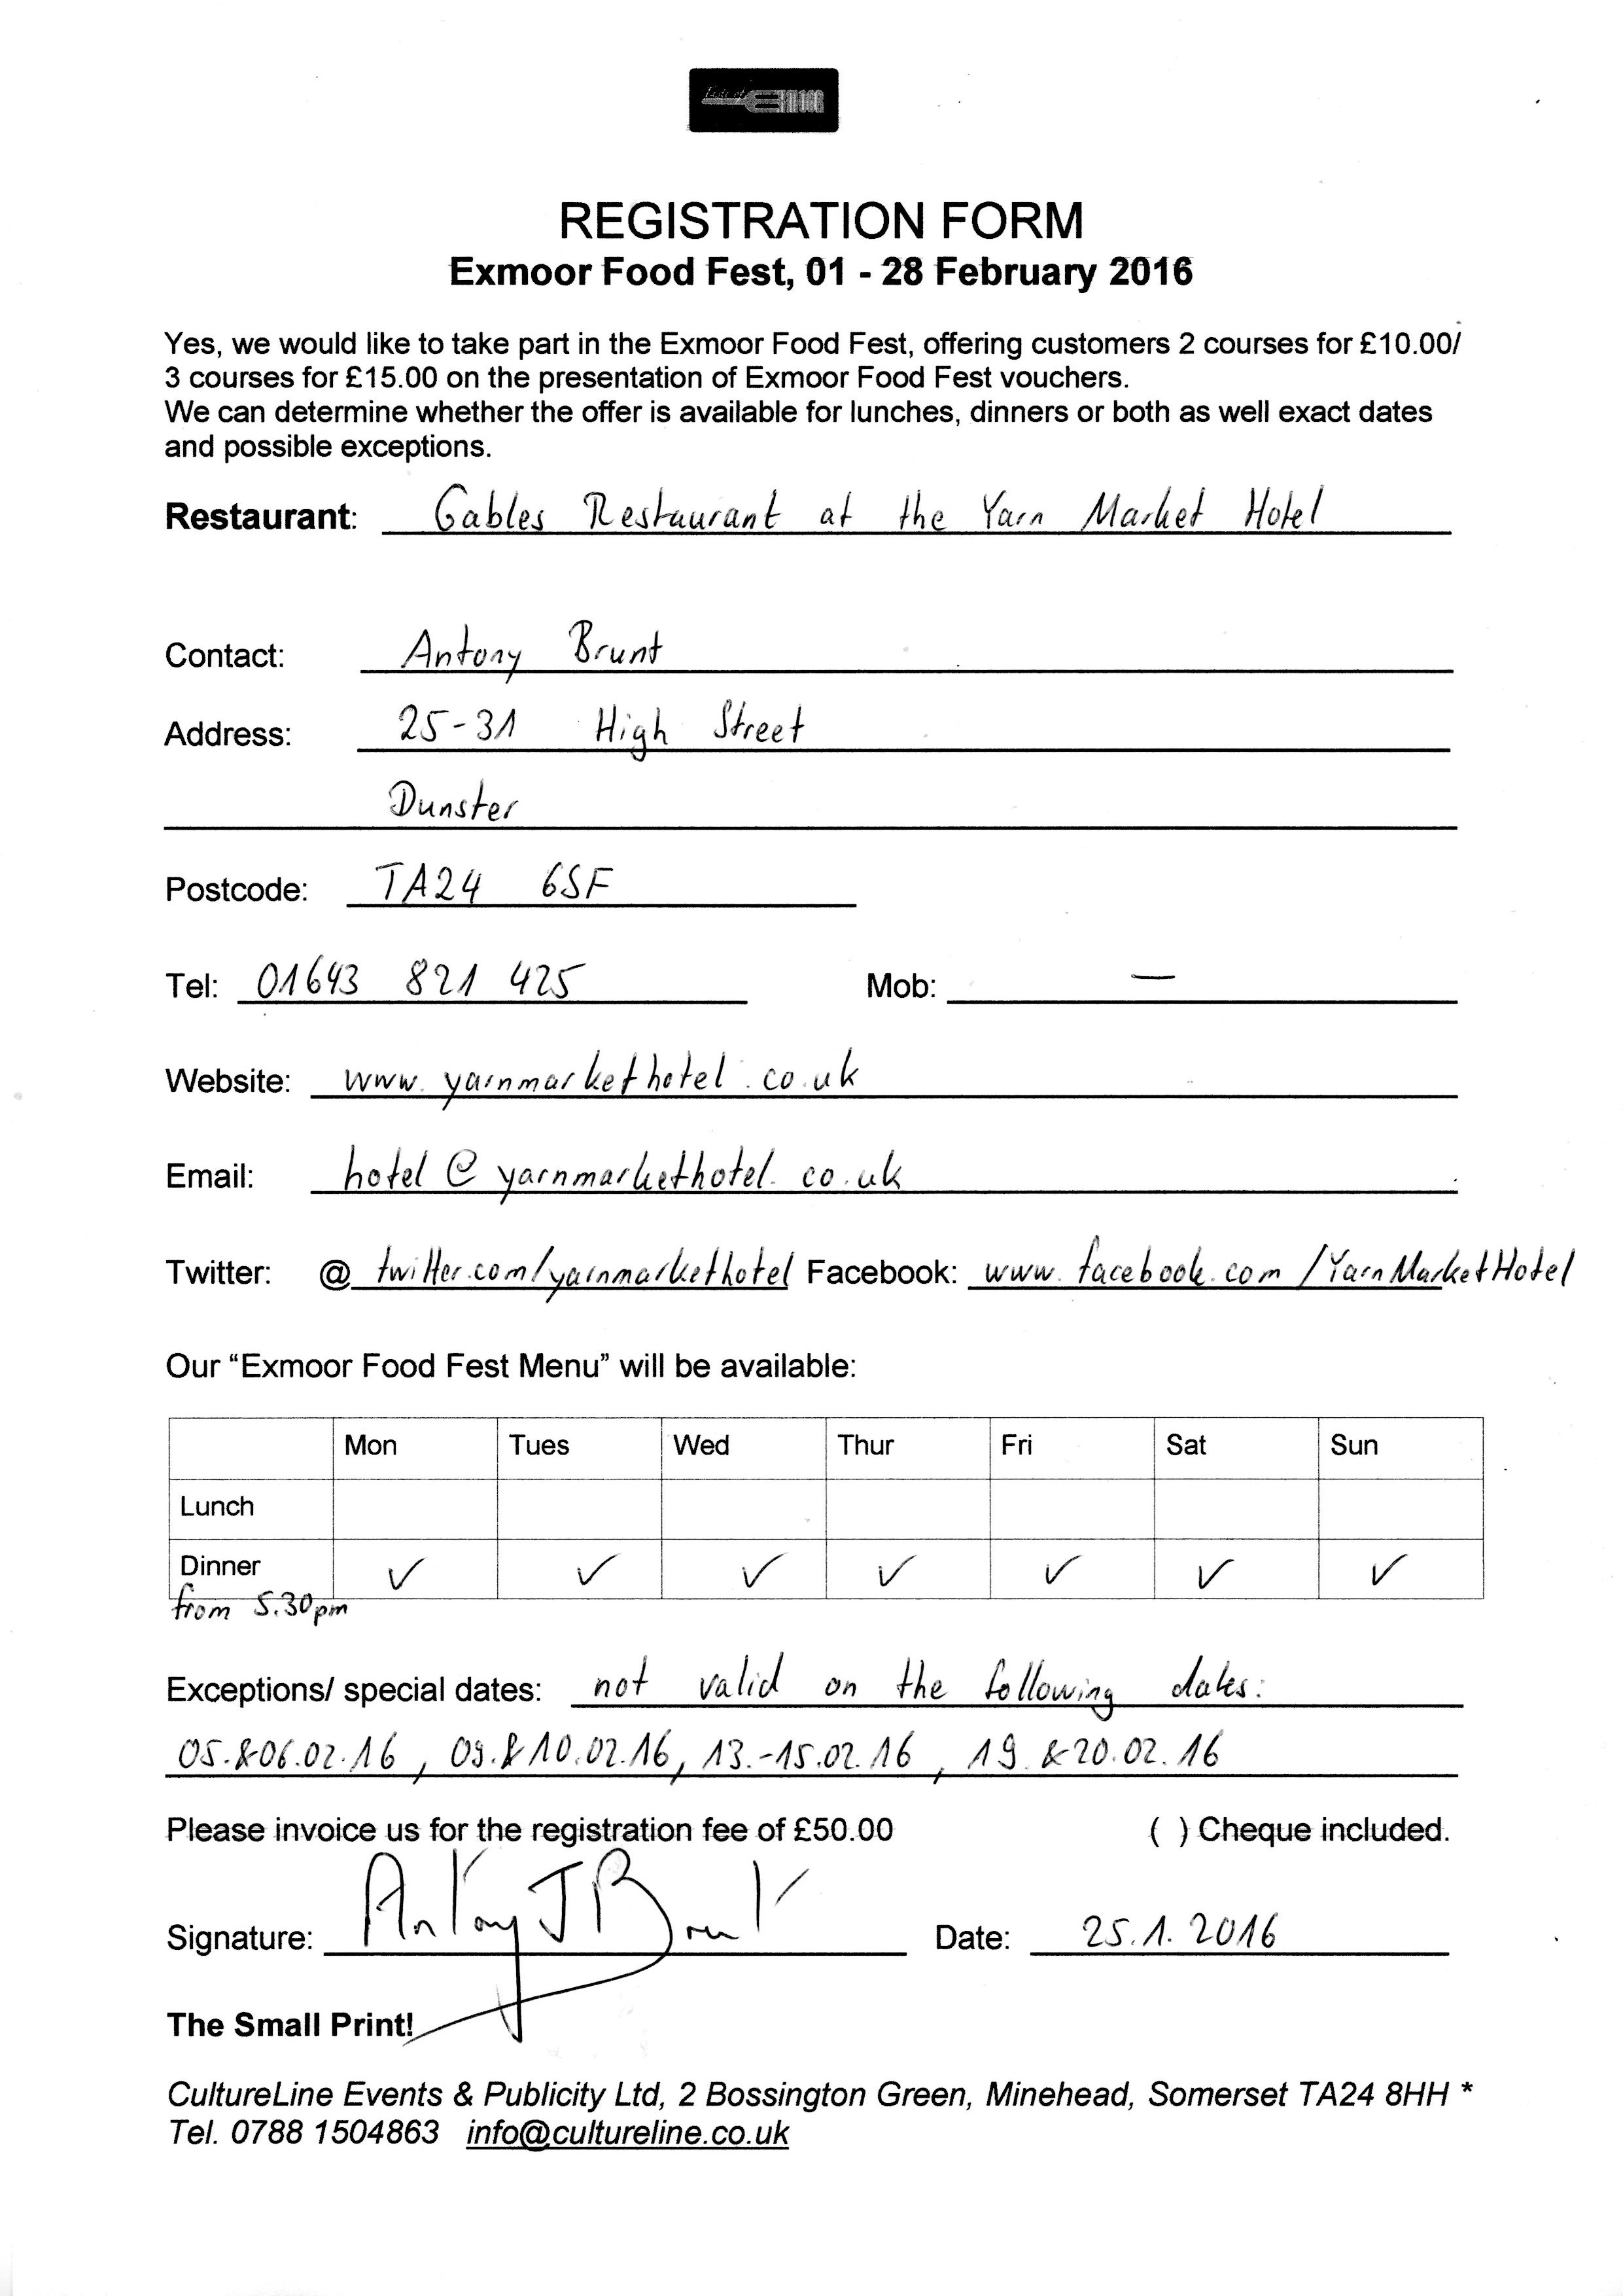 Taste of EXMOOR
REGISTRATION FORM
Exmoor Food Fest, 01 - 28 February 2016
Yes, we would like to take part in the Exmoor Food Fest, offering customers 2 courses for £10.00/
3 courses for £15.00 on the presentation of Exmoor Food Fest vouchers.
We can determine whether the offer is available for lunches, dinners or both as well exact dates
and possible exceptions.
Restaurant: Gables Restaurant at the Yarn Market Hotel
Contact: Antony Brunt
Address: 25-31 High Street
Dunster
Postcode: TA24 6SF
Tel: 01643 821 425 Mob: —
Website: www.yarnmarkethotel.co.uk
Email: hotel@yarnmarkethotel.co.uk
Twitter: @ twitter.com/yarnmarkethotel Facebook: www.facebook.com/YarnMarketHotel
Our “Exmoor Food Fest Menu” will be available:
Mon Tues Wed Thur Fri Sat Sun
Lunch
Dinner ✓ ✓ ✓ ✓ ✓ ✓ ✓
from 5.30pm
Exceptions/ special dates: not valid on the following dates:
05.&06.02.16, 09.&10.02.16, 13.-15.02.16, 19.&20.02.16
Please invoice us for the registration fee of £50.00 ( ) Cheque included.
Signature: Antony J Brunt Date: 25.1.2016
The Small Print!
CultureLine Events & Publicity Ltd, 2 Bossington Green, Minehead, Somerset TA24 8HH *
Tel. 0788 1504863 info@cultureline.co.uk